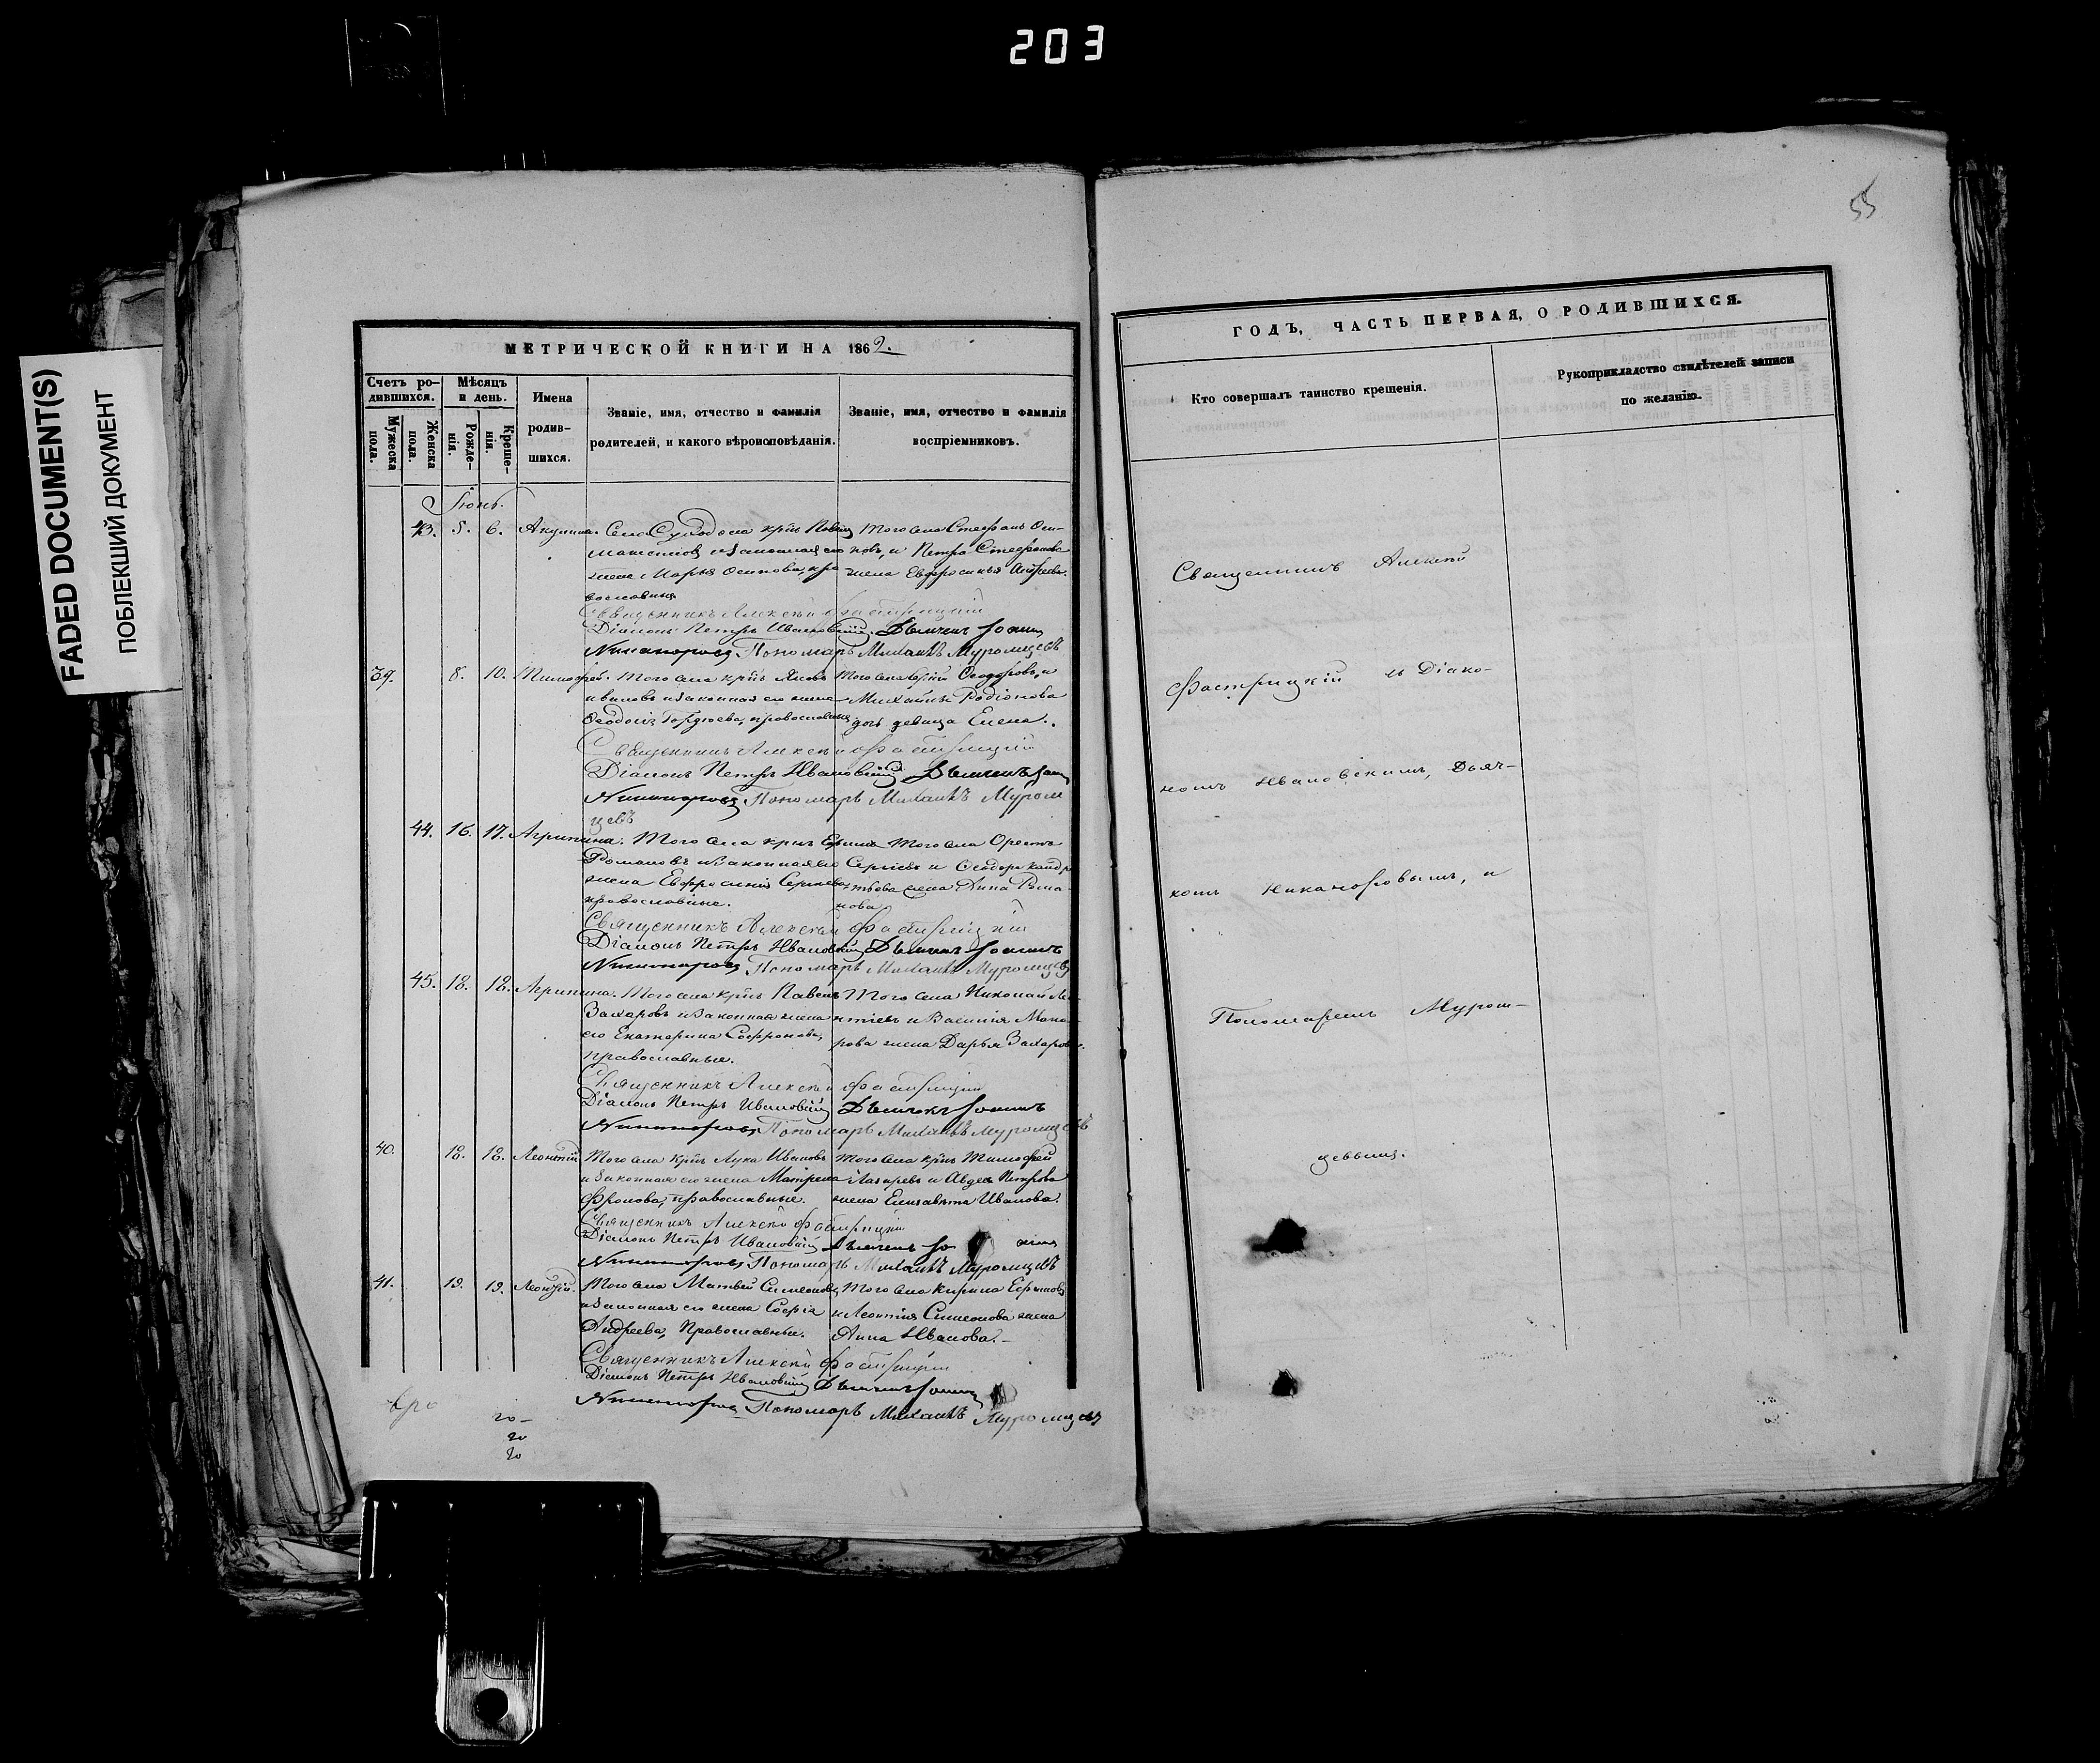 203
FADED DOCUMENT(S)
ПОБЛЕКШИЙ ДОКУМЕНТ
МЕТРИЧЕСКОЙ КНИГИ НА 1862.
Счетъ ро-
дившихся.
Мужеска
пола.
Женска
пола.
Мѣсяцъ
и день.
Рожде-
нія.
Креще-
нія.
Имена
родив-
шихся.
Званіе, имя, отчество и фамилія
родителей, и какого вѣроисповѣданія.
Званіе, имя, отчество и фамилія
воспріемниковъ.
Іюнь.
43. 5. 6. Акулина. Села Суходола крнъ Того села Стефанъ Оси-
и законная его повъ, и Петра Стефанова
жена Марья Осипова, пра жена Евфросинья Андреева.
вославныя
Священникъ Алексѣй
Діаконъ Петръ Ивановскій Дьячекъ Іоаннъ
Никаноровъ Пономарь Михаилъ Муромцевъ
39. 8. 10. Тимофей. Того села крнъ Того села Ѳеодоровъ, и
Ивановъ и законная его жена Михаила Родіонова
Ѳеодосія Гордѣева, православныя дочь девица Елена.
Священникъ Алексѣй
Діаконъ Петръ Ивановскій Дьячекъ Іоаннъ
Никаноровъ Пономарь Михаилъ Муром
цевъ
44. 16. 17. Агрипина. Того села крнъ Того села Орестъ
Романовъ и законная его Сергѣевъ и Ѳеодора
жена Евфросинія Сергѣева жена Анна Рома-
православные. нова
Священникъ Алексѣй
Діаконъ Петръ Ивановскій Дьячекъ Іоаннъ
Никаноровъ Пономарь Михаилъ Муромцевъ
45. 18. 18. Агрипина. Того села крнъ Павелъ Того села Николай Ле-
Захаровъ и законная жена нтіевъ и Василія Мака-
его Екатерина Софронова, рова жена Дарья Захарова.
православные.
Священникъ Алексѣй
Діаконъ Петръ Ивановскій Дьячекъ Іоаннъ
Никаноровъ Пономарь Михаилъ Муромцевъ
40. 18. 18. Леонтій Того села крнъ Лука Ивановъ Того села крнъ Тимофей
и законная его жена Матрена Лазаревъ и Авдея Петрова
Фролова, православные. жена Елизавета Иванова.
Священникъ Алексѣй
Діаконъ Петръ Ивановскій Дьячекъ Іоаннъ
Никаноровъ Пономарь Михаилъ Муромцевъ
41. 19. 19. Леонтій. Того села Матвей Симеоновъ Того села Кирила Ефимовъ
и законная его жена Софія и Леонтія Симеонова жена
Андреева, Православные. Анна Иванова.
Священникъ Алексѣй
Діаконъ Петръ Ивановскій Дьячекъ Іоаннъ
Никаноровъ Пономарь Михаилъ Муромцевъ
20
20
20
55
ГОДЪ, ЧАСТЬ ПЕРВАЯ, О РОДИВШИХСЯ.
Кто совершалъ таинство крещенія.
Рукоприкладство свидѣтелей записи
по желанію.
Священникъ Алексѣй
и Діако-
номъ Ивановскимъ, Дьяч-
комъ Никаноровымъ, и
Пономаремъ Муром-
цевымъ.